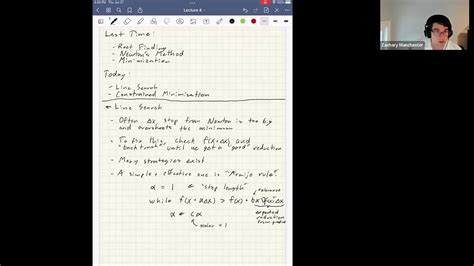 4:45 PM Thu Jan 27
Lecture 4
Last Time:
- Root Finding
- Newton's Method
- Minimization
Today:
- Line Search
- Constrained Minimization
* Line Search
- Often Δx step from Newton is too big
and overshoots the minimum
- To fix this, check f(x+Δx) and
"backtrack" until we get a "good" reduction
- Many strategies exist.
- A simple + effective one is "Armijo rule":
α = 1 ← "step length"
tolerance
while f(x + αΔx) > f(x) +
α ← cα
expected
reduction
from gradient
scalar < 1
Zachary Manchester